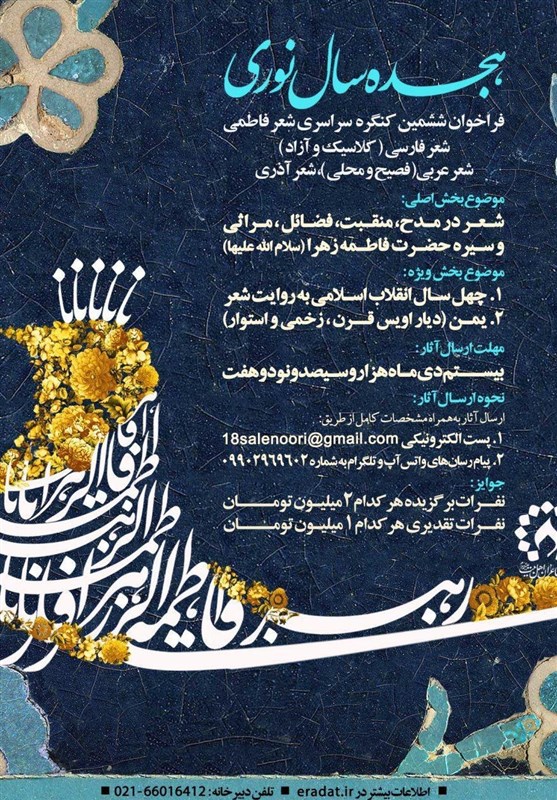 هجده سال نوری
فراخوان ششمین کنگره سراسری شعر فاطمی
شعر فارسی ( کلاسیک و آزاد )
شعر عربی(فصیح و محلی)، شعر آذری
موضوع بخش اصلی:
شعر در مدح، منقبت، فضائل، مراثی
و سیره حضرت فاطمه زهرا (سلام الله علیها)
موضوع بخش ویژه:
۱. چهل سال انقلاب اسلامی به روایت شعر
۲. یمن (دیار اویس قرن، زخمی و استوار)
مهلت ارسال آثار:
بیستم دی ماه هزار و سیصد و نود و هفت
نحوه ارسال آثار:
ارسال آثار به همراه مشخصات کامل از طریق:
۱. پست الکترونیکی 18salenoori@gmail.com
۲. پیام رسان‌های واتس آپ و تلگرام به شماره ۰۹۹۰۲۹۶۹۶۰۲
جوایز:
نفرات برگزیده هر کدام ۲ میلیون تومان
نفرات تقدیری هر کدام ۱ میلیون تومان
فاطمه الزهرا
■ اطلاعات بیشتر در eradat.ir ■ تلفن دبیرخانه: 66016412-021 ■